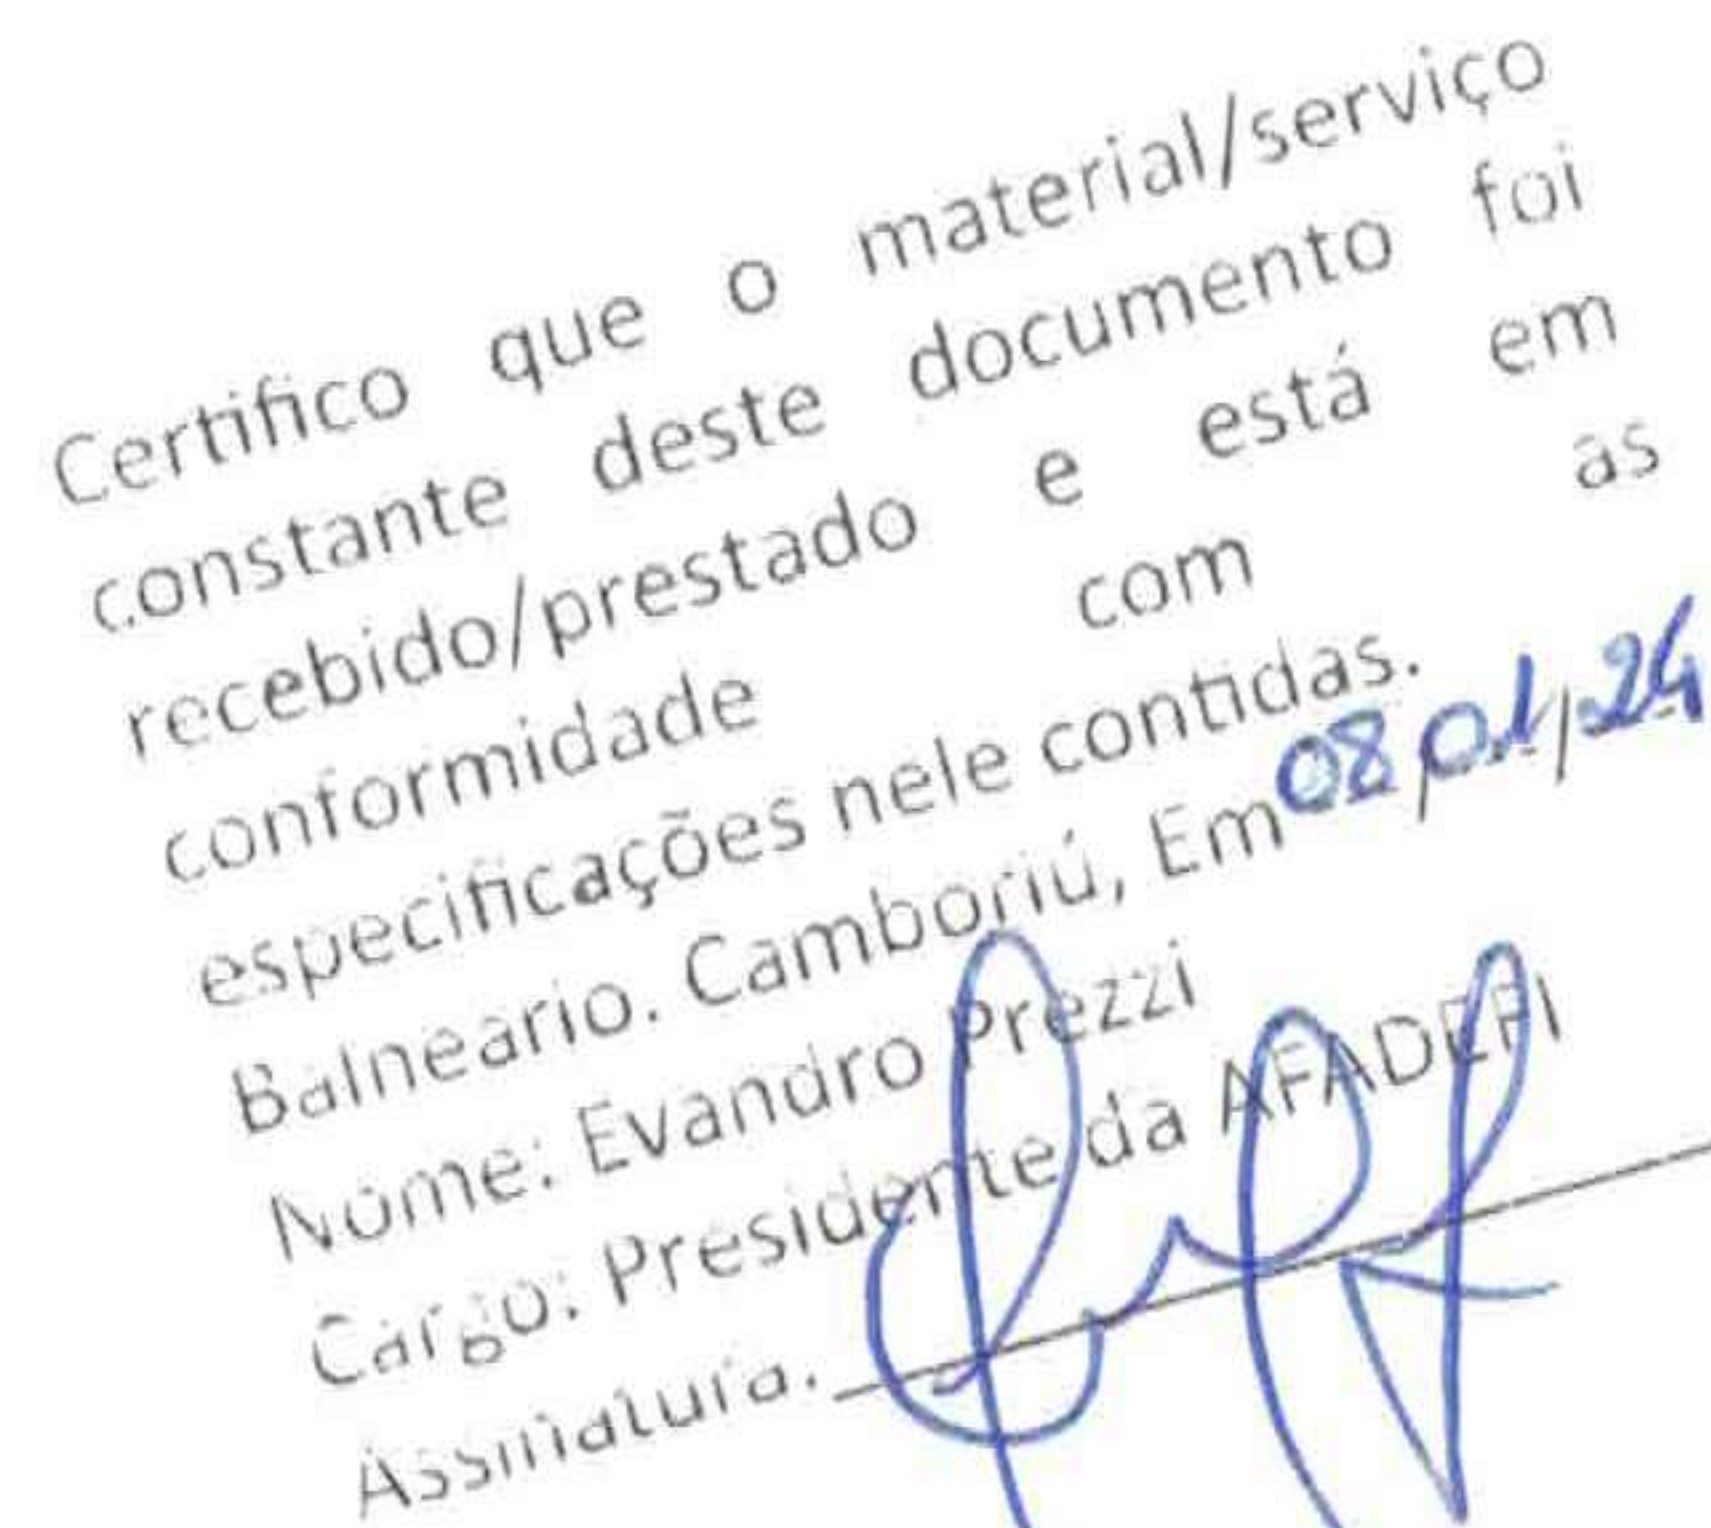 Certifico que o material/serviço
constante deste documento foi
recebido/prestado e está em
conformidade com as
especificações nele contidas.
Balneario. Camboriú, Em 08/01/24
Nome: Evandro Prezzi
Cargo: Presidente da AFADEFI
Assinatura.